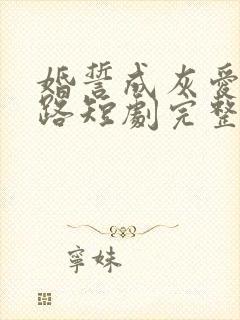 婚誓成灰愛
路短劇完整
寧妹